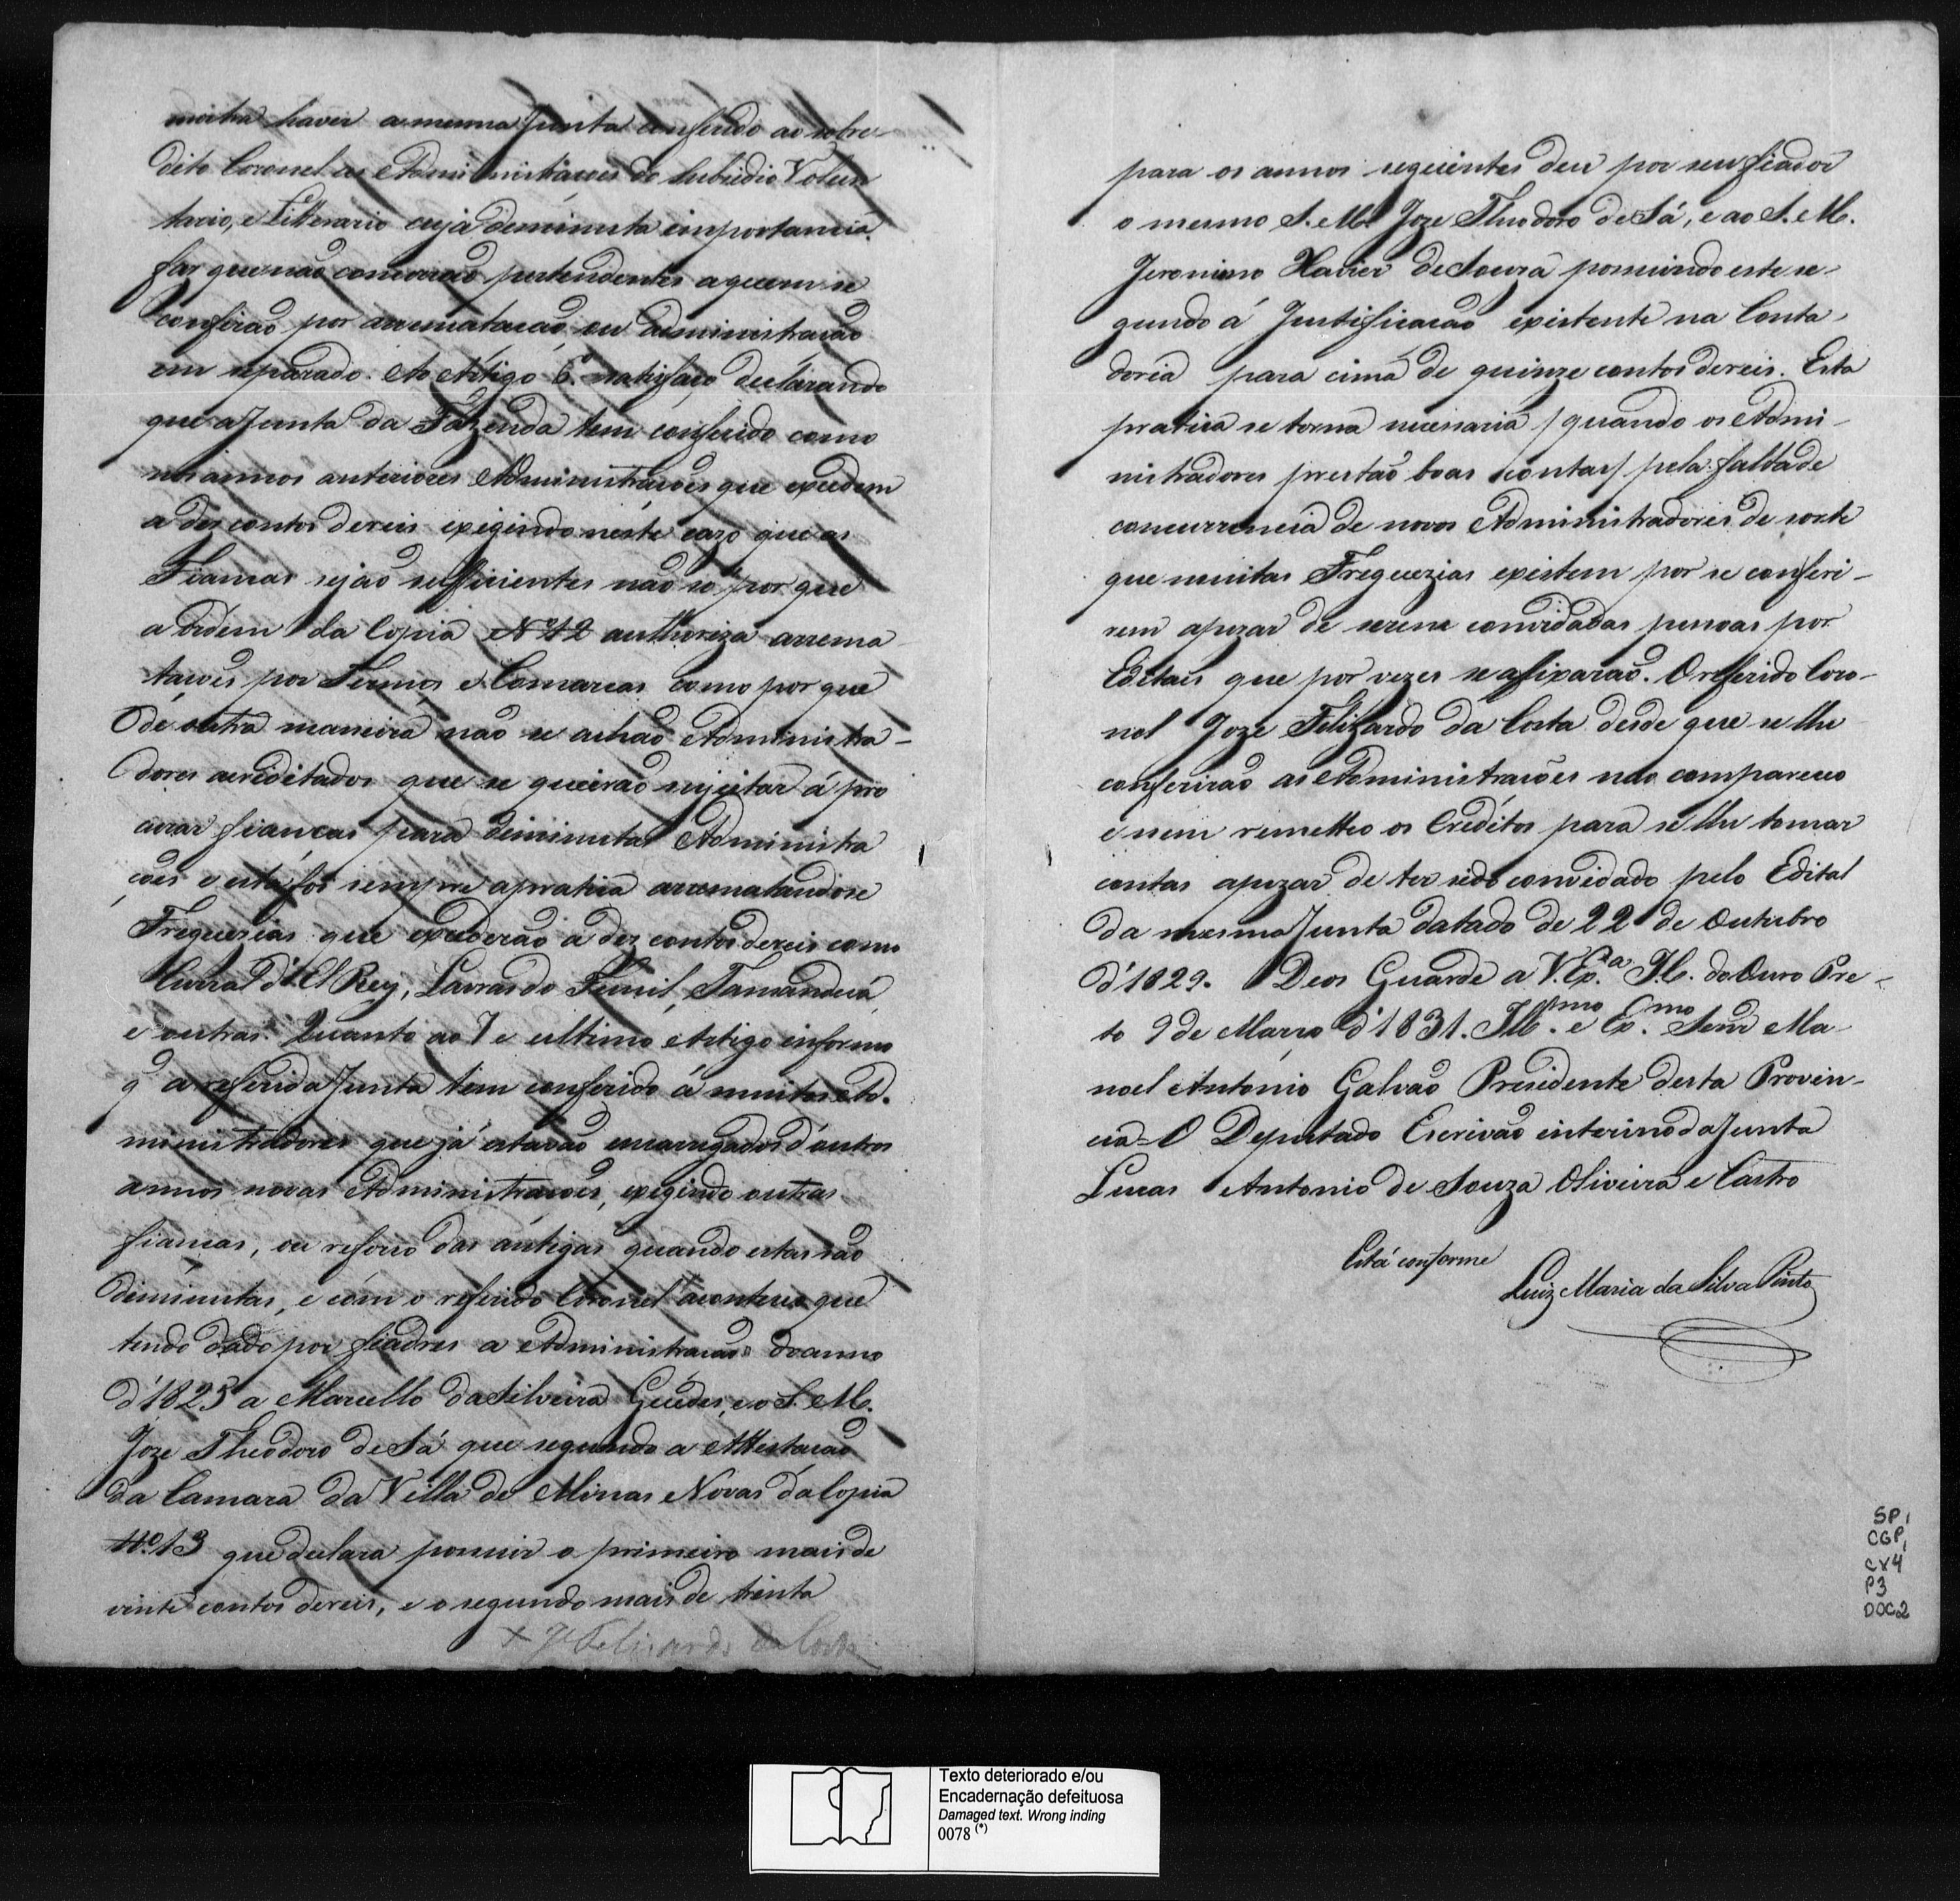 mostra haver a mesma Junta conferido ao sobre-
dito Coronel as Administrações do Subsidio Volun
tario, e Litterario cuja deminuta importancia
faz que não concorrão pertendentes a quem se
confirão por arrematação, ou administração
em separado. Ao Artigo 6º satisfaço, declarando
que a Junta da Fazenda tem conferido como
nos annos anteriores Administrações que excedem
a des contos de reis exigindo néste cazo que as
Fianças sejão sufficientes não só por que
a Ordem da Copia Nº 12 authoriza arrema
tações por Termos e Comarcas como por que
de outra maneira não se achão Administra-
dores acreditados que se queirão sujeitar á pro
curar fianças para deminuta Administra
ções e esta foi sempre a pratica arrematandose
Freguesias que excederão a des contos de reis como
Curral d'El Rey, Lavras do Funil, Tamanduá
e outras. Quanto ao 7 e ultimo Artigo informo
q' a referida Junta tem conferido á muitos Ad-
ministradores que já estavão encarregados d'outros
annos novas Administrações, exegindo outras
fianças, ou reforço das antigas quando estas são
deminutas, e com o referido Coronel aconteceo que
tendo dado por fiadres a Administração do anno
d'1825 a Marcello da Silveira Guedes, e o S. M.
Joze Theodoro de Sá que segundo a Attestação
da Camara da Villa de Minas Novas da Copia
Nº 13 que declara possuir o primeiro mais de
vinte contos de reis, e o segundo mais de trinta
+ Je Felisardo da Costa
para os annos seguientes deu por seu fiador
o mesmo S. M. Joze Theodoro de Sá, e ao S. M.
Jeronimo Xavier de Souza possuindo este se-
gundo á Justificação existente na Conta-
doria para cima de quinze contos de reis. Esta
pratica se torna necessaria / quando os Admi-
nistradores prestão boas contas / pela falta de
concurrencia de novos Administradores de sorte
que muitas Freguezias existem por se conferi-
rem apezar de serem convidadas pessoas por
Editais que por vezes se afixarão. O referido Coro-
nel Joze Felizardo da Costa desde que se lhe
conferirão as Administrações não compareceo
e nem remetteo os Créditos para se lhe tomar
contas apezar de ter sido convidado pelo Edital
da mesma Junta datado de 22 de Outubro
d'1829. Deos Guarde a V. Exª. I. C. do Ouro Pre-
to 9 de Março d'1831. Illmo. e Exmo. Senr Ma-
noel Antonio Galvão Presidente desta Provin-
cia = O Deputado Escrivão interino da Junta
Lucas Antonio de Souza Oliveira e Castro
Está conforme
Luiz Maria da Silva Pinto
SP,
CGP,
CX4
P3
DOC.2
Texto deteriorado e/ou
Encadernação defeituosa
Damaged text. Wrong inding
0078 (*)